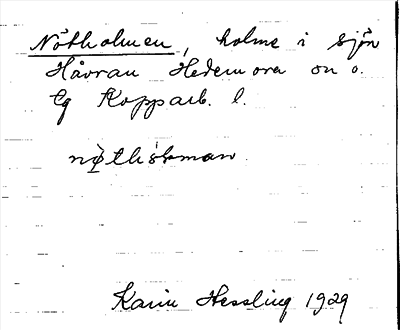 Nötholmen, holme i sjön
Håvran Hedemora sn o.
tg Kopparb. l.
Karin Hessling 1929